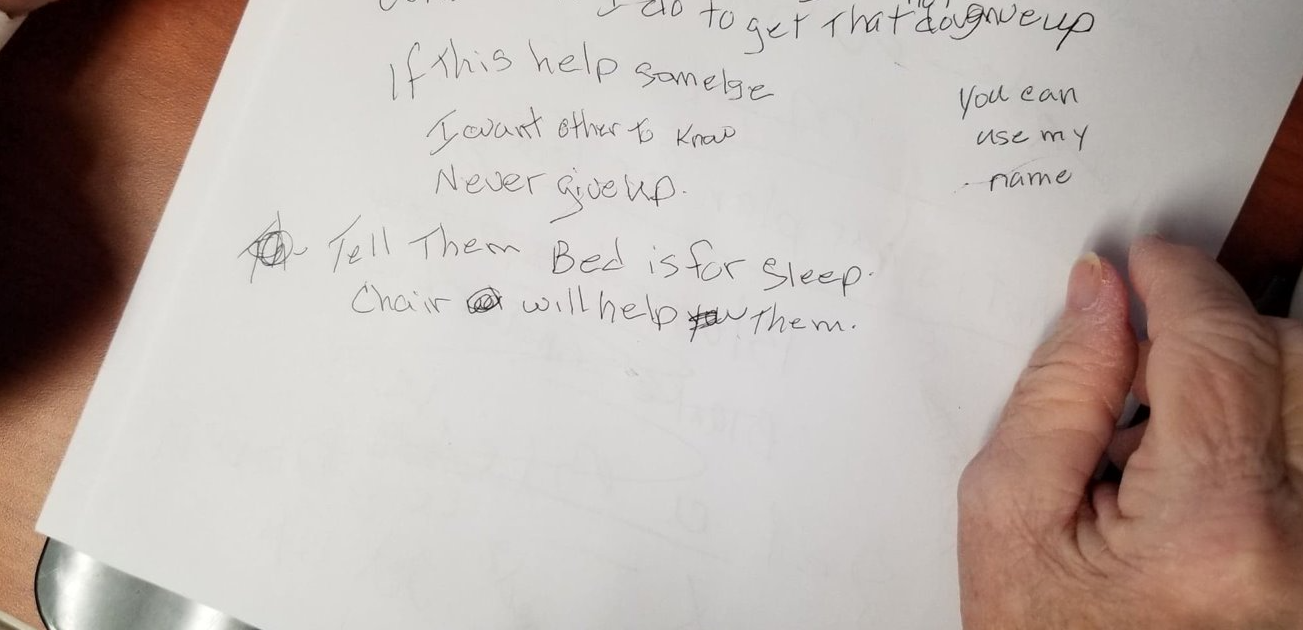 I do to get That
give up
If this help somelse
I want other to know
Never give up.
You can
use my
name
Tell Them Bed is for sleep.
Chair will help Them.